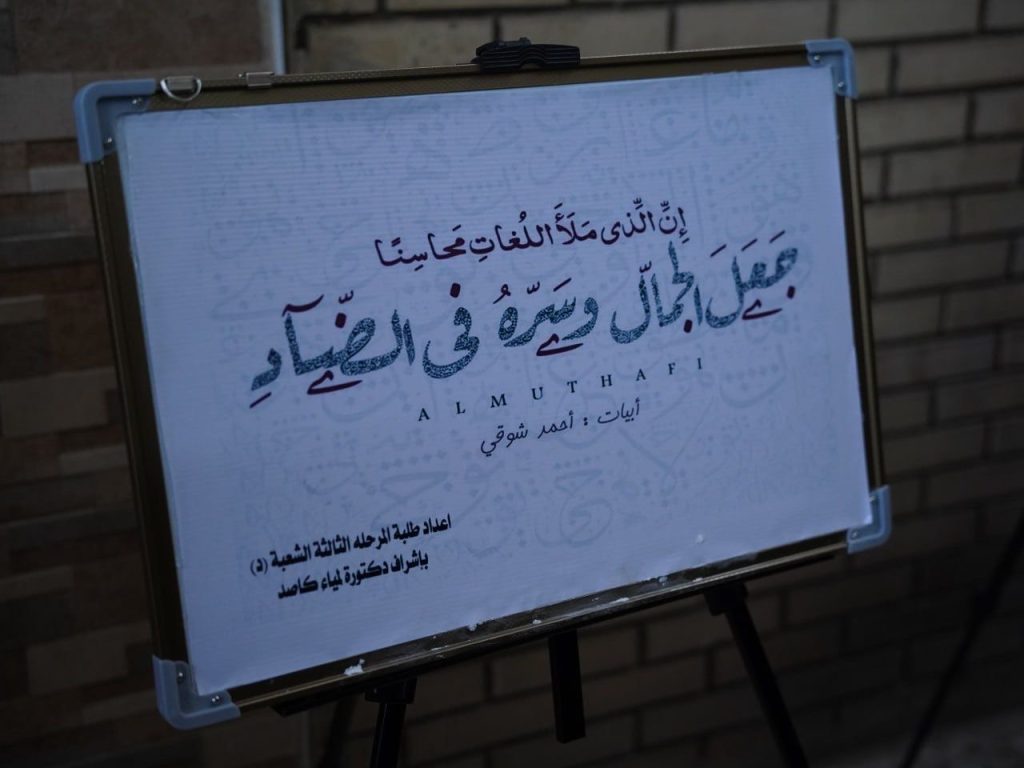 إِنَّ الَّذِى مَلَأَ اللُغَاتِ مَحَاسِنًا
جَعَلَ الجَمَالَ وَسِرَّهُ فى الضّآدِ
ALMUTHAFI
أبيات : أحمد شوقي
اعداد طلبة المرحله الثالثة الشعبة (د)
بإشراف دكتورة لمياء كاصد